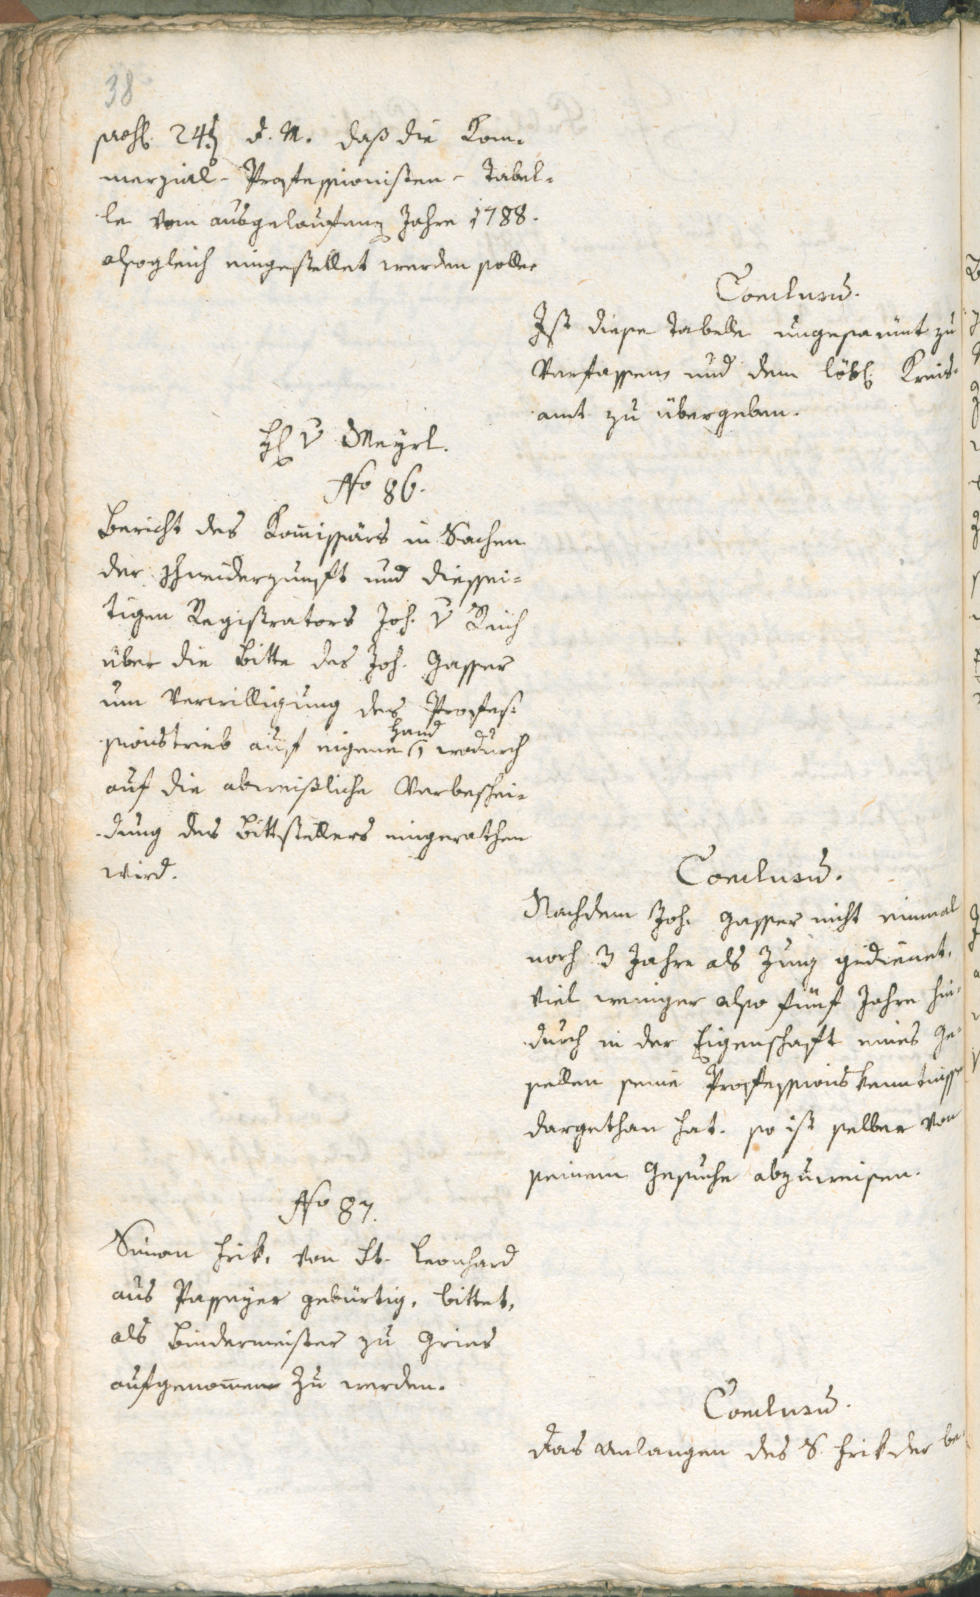 38
praes. 24ten d. M. daß die Kom-
merzial-Professionisten-Tabel-
le vom ausgelaufenen Jahre 1788.
alsogleich eingestellet werden solle
Conclusum.
Ist diese Tabelle ungesaumt zu
Verfassen und dem löbl. Kreis-
amt zu übergeben.
H. v Mayrl.
No 86.
Bericht des Komissärs in Sachen
der Schneiderzunft und diessei-
tigen Registrators Joh. v Reich
über die Bitte des Joh. Gasser
um Verwilligung des Profes-
sionstrieb auf eigene Hand wodurch
auf die abweißliche Verbeschei-
dung des Bittstellers eingerathen
wird.
Conclusum.
Nachdem Joh. Gasser nicht einmal
noch 3 Jahre als Jung gedienet,
viel weniger also fünf Jahre hin-
durch in der Eigenschaft eines Ge-
sellen seine Professions kenntnisse
dargethan hat. so ist selber von
seinem Gesuche abzuweisen.
No 87.
Simon Frik, von St. Leonhard
aus Passeyer gebürtig, bittet,
als Bindermeister zu Gries
aufgenommen zu werden.
Conclusum.
Das Anlangen des S. Frik der be-